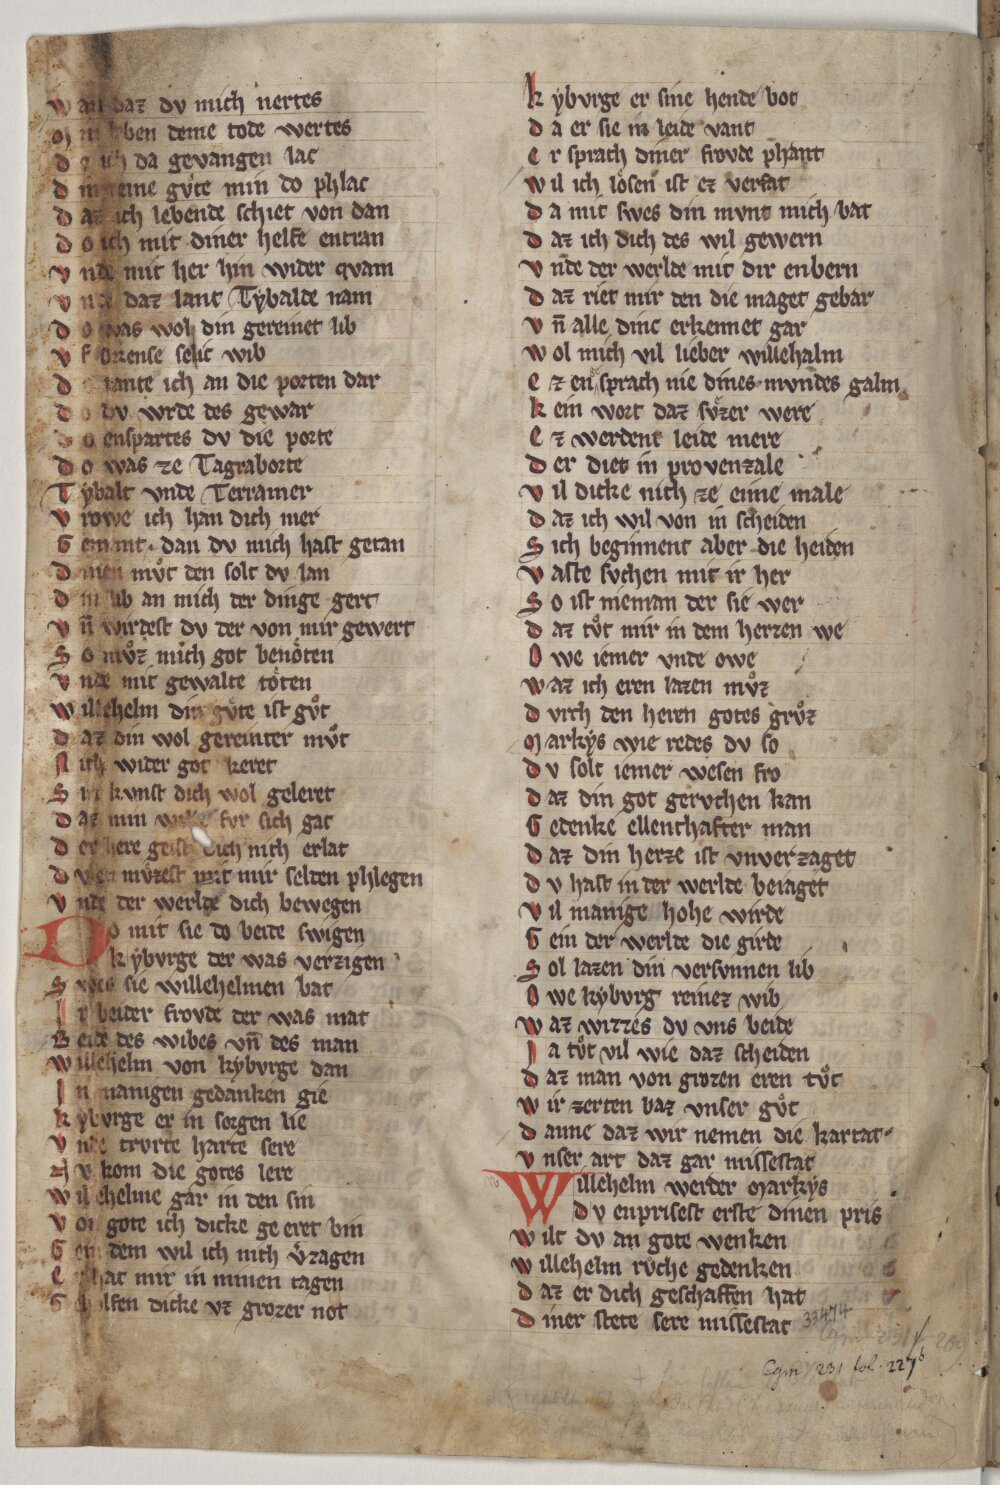 w an daz dv mich nertes
M in leben deme tode wertes
d o ich da gevangen lac
d in reine gvͤte min do phlac
d az ich lebende schiet von dan
d o ich mit diner helfe entran
v nde mit her hin wider qvam
v nde daz lant Tybalde nam
d o was wol din gereinet lib
v selic wib
d o sante ich an die porten dar
d o dv wrde des gewar
d o enspartes dv die porte
d o was ze Tagraborte
T ybalt vnde Terramer
v rowe ich han dich mer
G emant dan dv mich hast getan
d inen mvͦt den solt dv lan
d in lib an mich der dinge gert
v n̄ wirdest dv der von mir gewert
S o mvͦz mich got benoͤten
v nde mit gewalte toͤten
w illehelm din gvͤte ist gvͦt
d az din wol gereinter mvͦt
N ich wider got keret
S in kvnst dich wol geleret
d az min wille fvr sich gat
d er here geist dich nich erlat
d v en mvͤzest mit mir selden phlegen
v nde der werlde dich bewegen
D o mit sie do beide swigen
k ybvrge der was verzigen
S wes sie willehelmen bat
I r beider frovde der was mat
B eide des wibes vn̄ des man
w illehelm von kybvrge dan
I n manigen gedanken gie
k ybvrge er in sorgen lie
v nde trvrte harte sere
N v kom die gotes lere
w illehelme gar in den sin
v on gote ich dicke ge eret bin
G ein dem wil ich nich v̓zagen
e r hat mir in minen tagen
G eholfen dicke vz grozer not
k ybvrge er sine hende bot
d a er sie in leide vant
e r sprach diner frovde phant
w il ich loͤsen ist ez verfat
d a mit swes din mvnt mich bat
d az ich dich des wil gewern
v nde der werlde mit dir enbern
d az riet mir den die maget gebar
v n̄ alle dinc erkennet gar
w ol mich vil lieber willehalm
e z en sprach nie dines mvndes galm
k ein wort daz svͤzer were
e z werdent leide mere
d er diet in provenzale
v il dicke nich ze eime male
d az ich wil von in scheiden
S ich beginnent aber die heiden
v aste svchen mit ir her
S o ist nieman der sie wer
d az tvͦt mir in dem herzen we
O we iemer vnde owe
w az ich eren lazen mvͦz
d vrch den heren gotes grvͦz
M arkys wie redes dv so
d v solt iemer wesen fro
d az din got gervchen kan
G edenke ellenthafter man
d az din herze ist vnverzaget
d v hast in der werlde beiaget
v il manige hohe wirde
G ein der werlde die girde
S ol lazen din versvnnen lib
O we kybvrg reinez wib
w az wizzes dv vns beide
I a tvͦt vil wie daz scheiden
d az man von grozen eren tvͦt
w ir zerten baz vnser gvͦt
d anne daz wir nemen die kartat
v nser art daz gar missestat
W illehelm werder Markys
d v enprisest erste dinen pris
w ilt dv an gote wenken
w illehelm rvͦche gedenken
d az er dich geschaffen hat
d iner stete sere missestat
33474
Cgm 231 fol. 227b